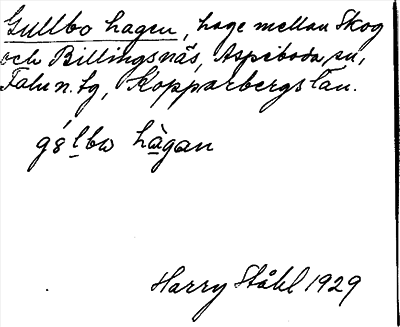 Gullbo hagen, hage mellan Skog
och Billingsnäs, Aspeboda sn,
Falu n. tg, Kopparbergs län.
hàgan
Harry Ståhl 1929